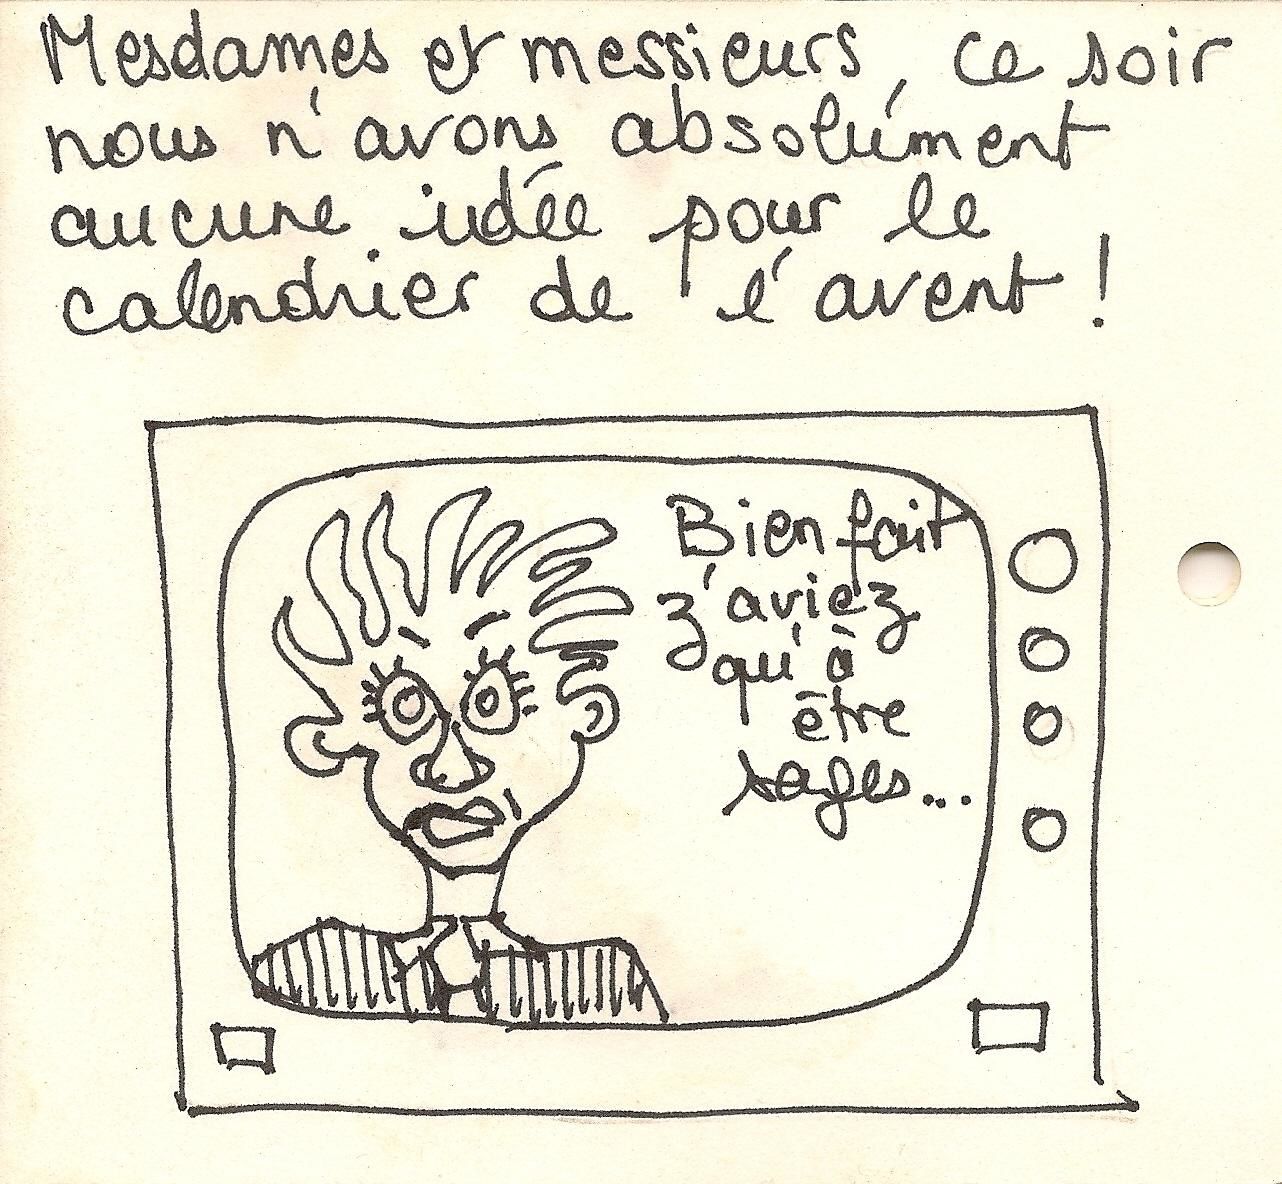 Mesdames et messieurs, ce soir
nous n'avons absolument
aucune idée pour le
calendrier de l'avent !
Bien fait
z'aviez
qu'à
être
sages...